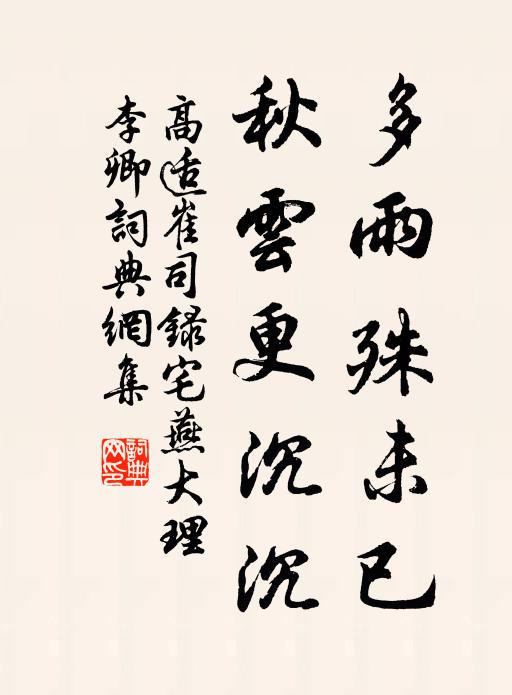 多雨殊未已
秋雲更沉沉
高适崔司錄宅燕大理
李卿詞典網集
詞典網印